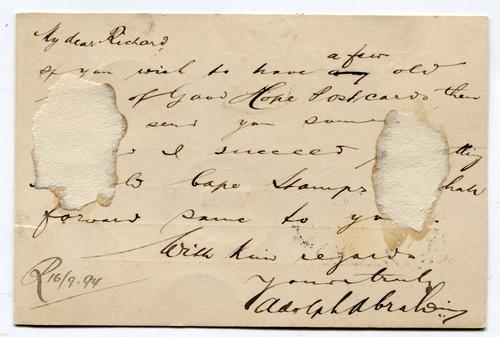 My dear Richard,
a few
If you wish to have any old
of Good Hope Postcards then
send you some
I succeed
Cape Stamps
forward same to
With kind regards
Yours truly
Adolph Abraham
R 16/9.94